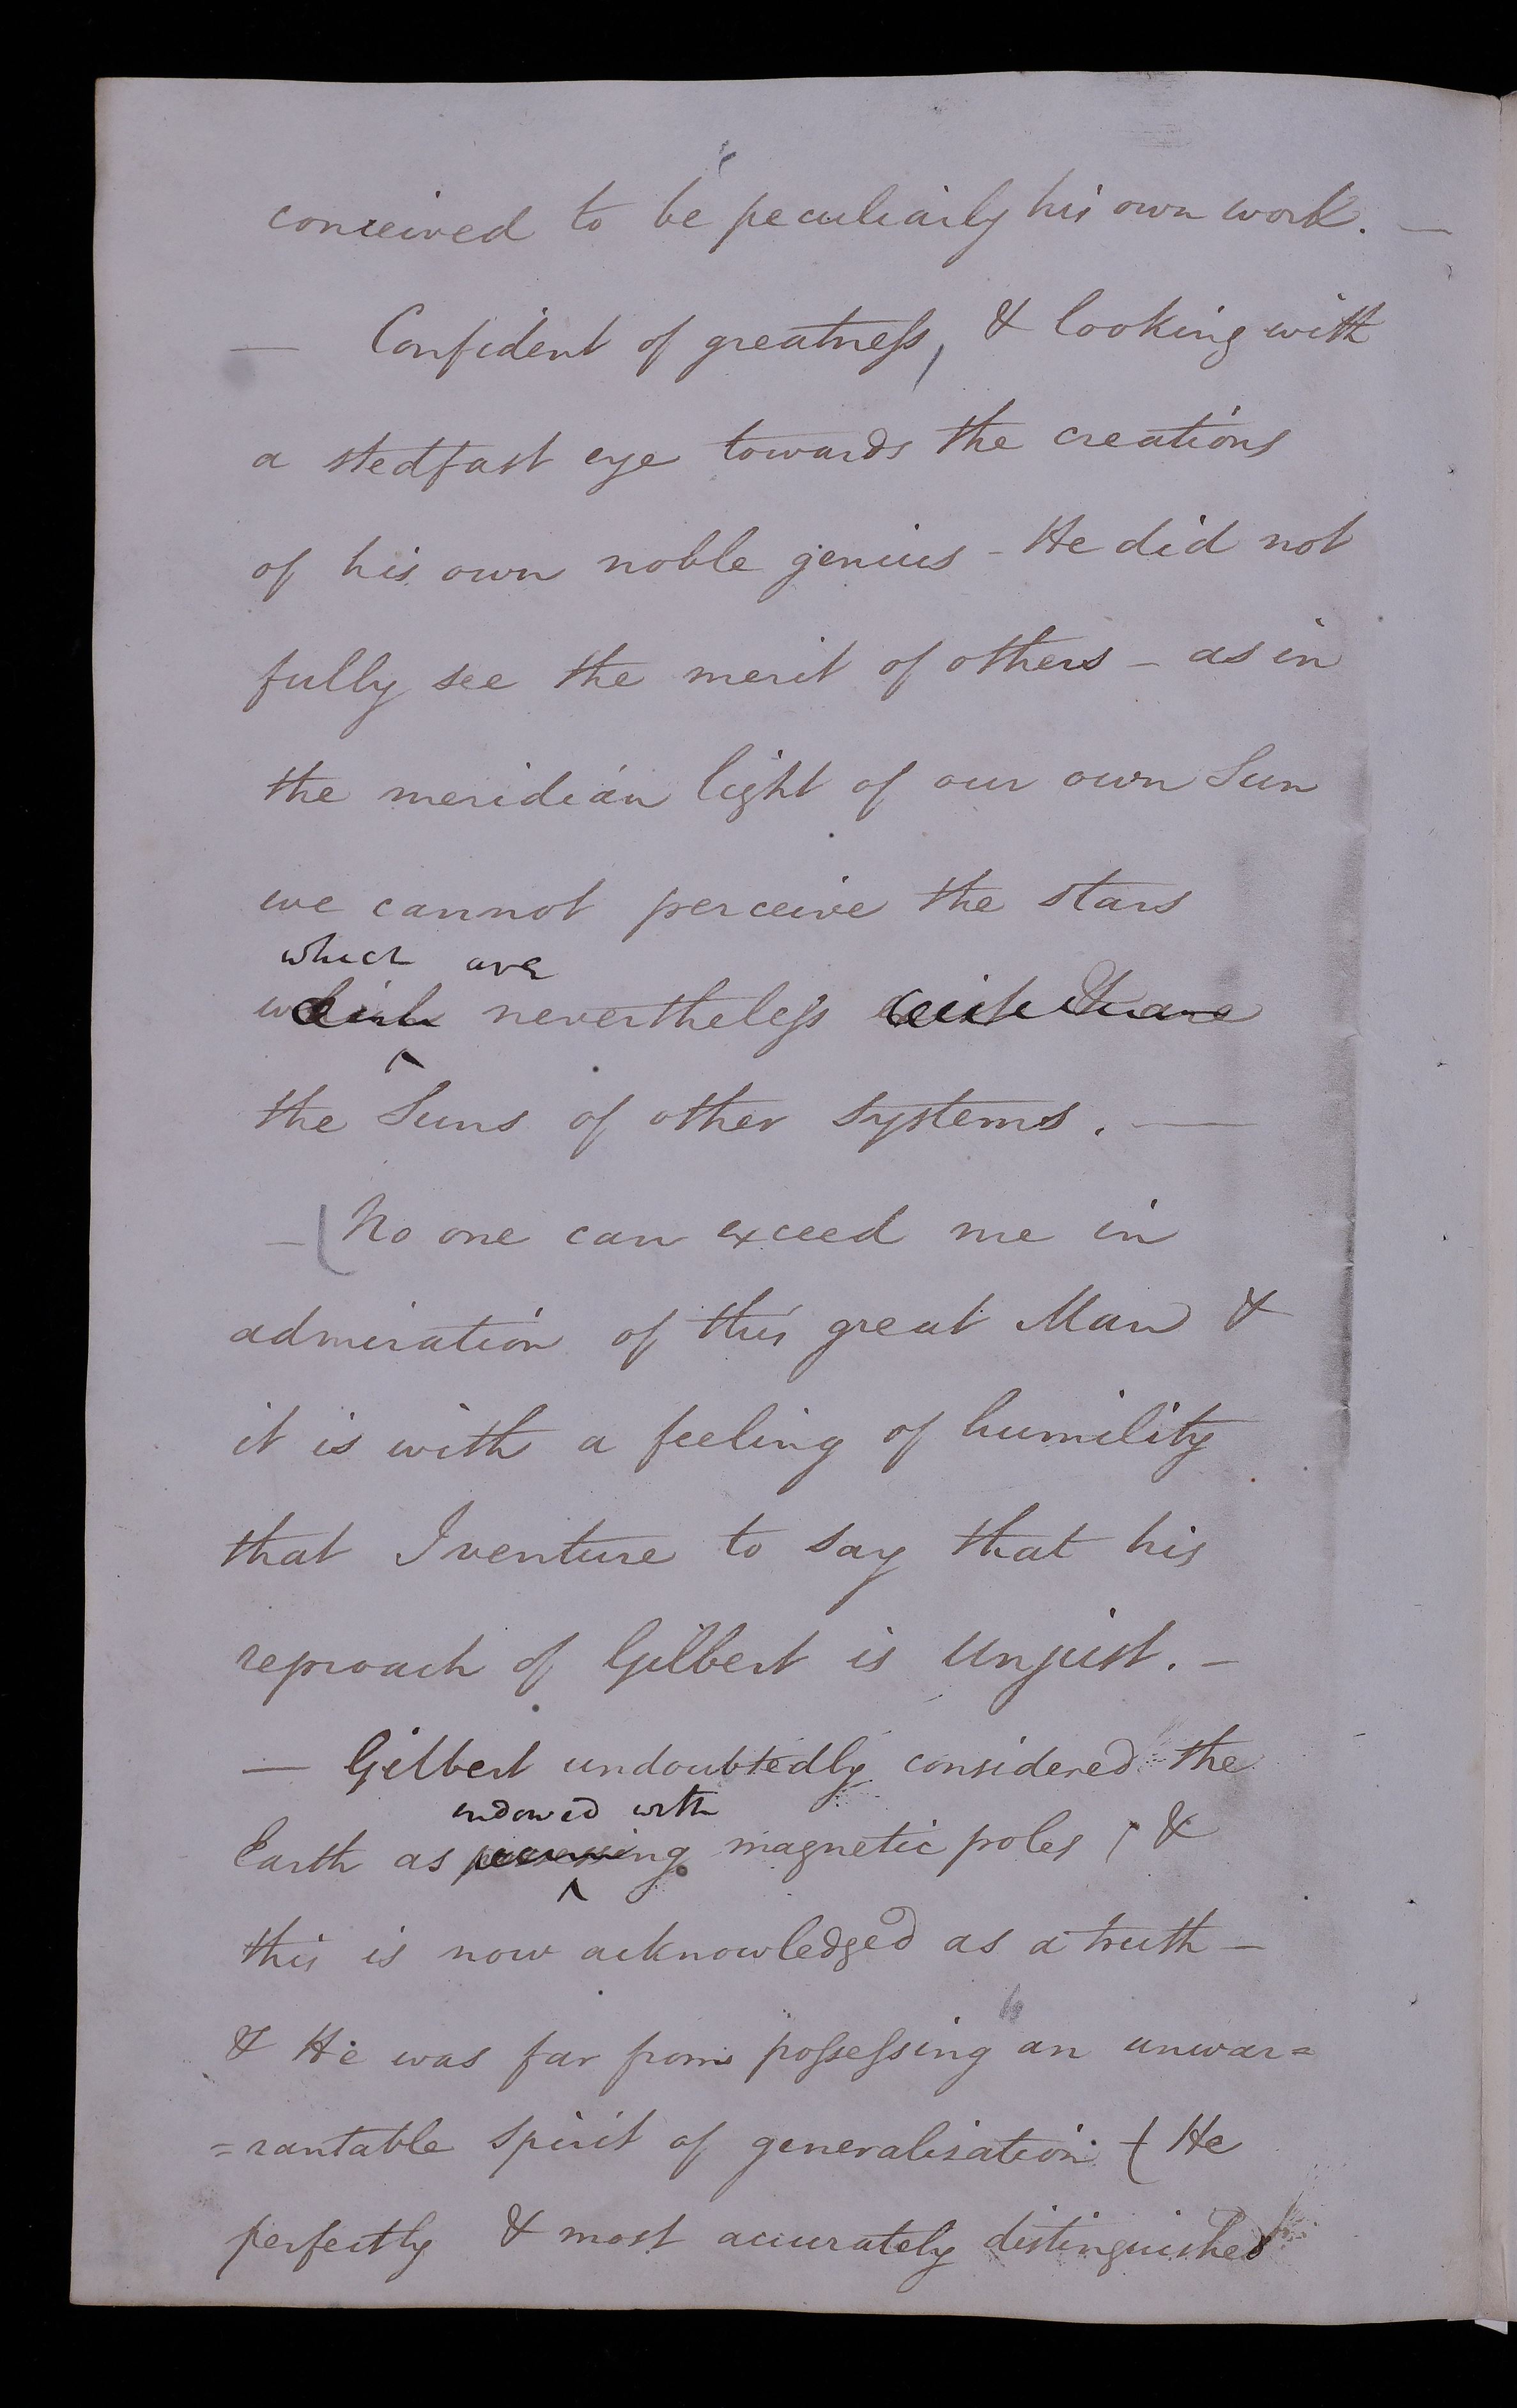 conceived to be peculiarly his own work. —
— Confident of greatness, & looking with
a stedfast eye towards the creations
of his own noble genius - He did not
fully see the merit of others – as in
the meridian light of our own Sun
we cannot perceive the stars
which are
which nevertheless
the Suns of other systems. —
– (No one can exceed me in
admiration of this great Man &
it is with a feeling of humility
that I venture to say that his
reproach of Gilbert is unjust. –
— Gilbert undoubtedly considered the
endowed with
Earth as possessing magnetic poles, &
this is now acknowledged as a truth –
& He was far from possessing an unwar=
=rantable spirit of generalisation. – ( He
perfectly & most accurately distinguished